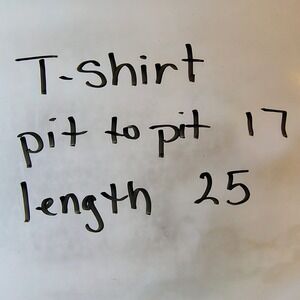 T-shirt
pit to pit 17
length 25